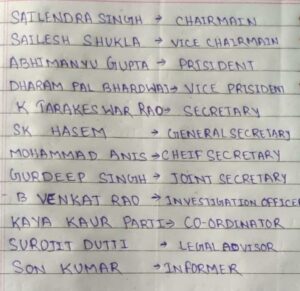 SAILENDRA SINGH → CHAIRMAIN
SAILESH SHUKLA → VICE CHAIRMAIN
ABHIMANYU GUPTA → PRISIDENT
DHARAM PAL BHARDWAJ → VICE PRISIDENT
K TARAKESWAR RAO → SECRETARY
SK HASEM → GENERAL SECRETARY
MOHAMMAD ANIS → CHEIF SECRETARY
GURDEEP SINGH → JOINT SECRETARY
B VENKAT RAO → INVESTIGATION OFFICE
KAYA KAUR PARTI → CO-ORDINATOR
SUROJIT DUTTI → LEGAL ADVISOR
SON KUMAR → INFORMER